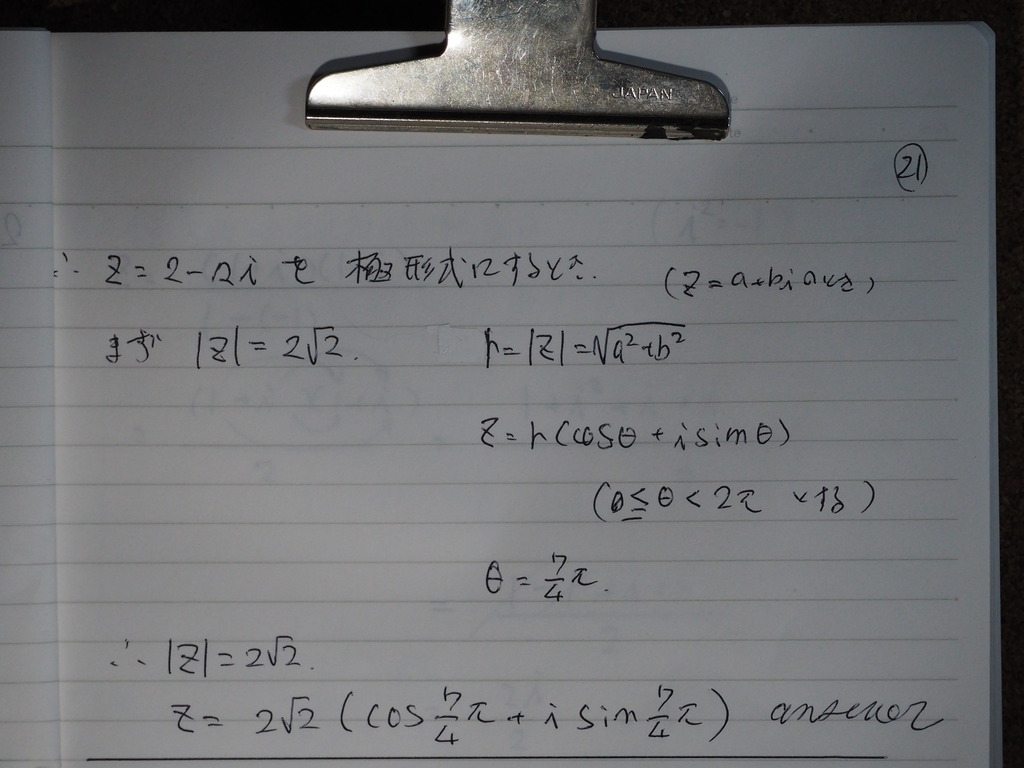 JAPAN
㉑
∴ Z = 2 - 2i を 極形式にすると.
(Z = a + bi のとき)
まず |Z| = 2√2.
r = |Z| = √a²+b²
Z = r (cosθ + i sinθ)
(0 ≦ θ < 2π とする)
θ = 7/4 π.
∴ |Z| = 2√2.
Z = 2√2 (cos 7/4 π + i sin 7/4 π) answer